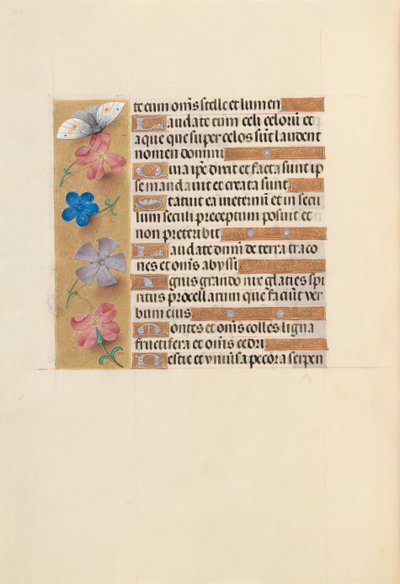 te eum om̃s stelle et lumen
Laudate eum celi celorũ et
aque que super celos sũt laudent
nomen domini
Q̃ia ip̃e dixit et facta sunt ip̃
se mandauit et creata sunt
Statuit ea in eternũ et in secu
lum seculi preceptum posuit et
non preteribit
Laudate dnũ de terra draco
nes et om̃s abyssi
Ignis grando nix glacies spi
ritus procellarum que faciũt ver
bum eius
Montes et om̃s colles ligna
fructifera et om̃s cedri
Bestie et vniũsa pecora serpen